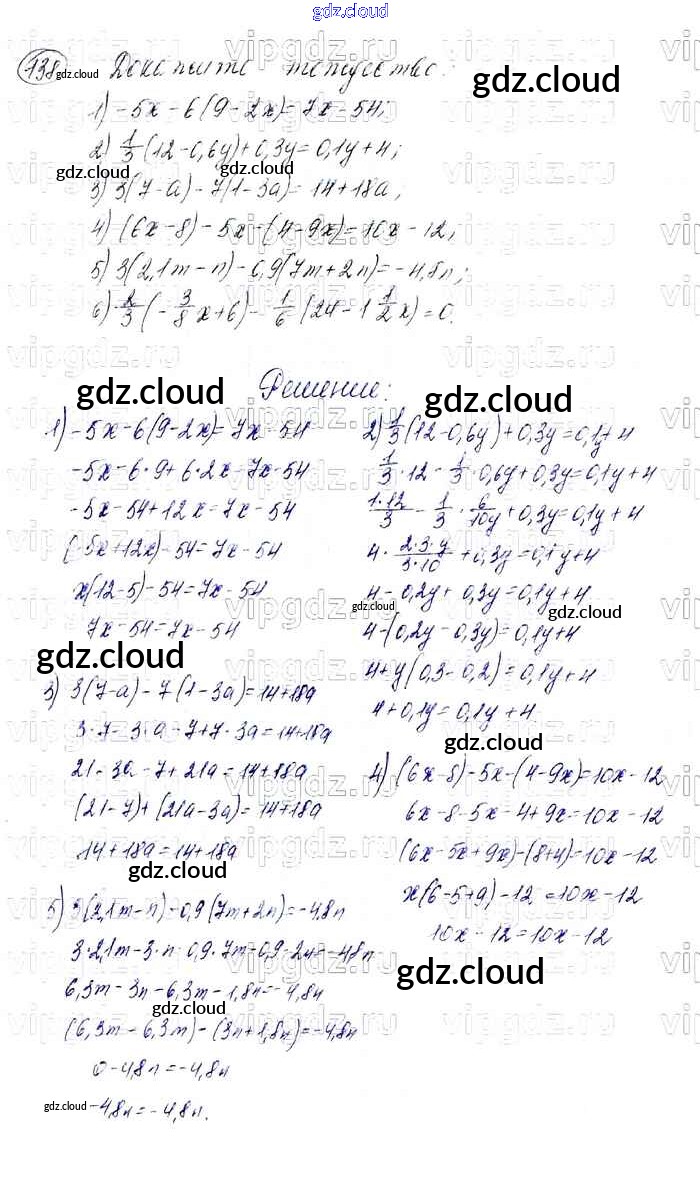 gdz.cloud
138 Докажите тождество:
1) -5x - 6(9 - 2x) = 7x - 54;
2) 1/3 (12 - 0,6y) + 0,3y = 0,1y + 4;
3) 3(7 - a) - 7(1 - 3a) = 14 + 18a;
4) (6x - 8) - 5x - (4 - 9x) = 10x - 12;
5) 3(2,1m - n) - 0,9(7m + 2n) = -4,8n;
6) 2/3 (-3/8 x + 6) - 1/6 (24 - 1 1/2 x) = 0.
Решение:
1) -5x - 6(9 - 2x) = 7x - 54
-5x - 6·9 + 6·2x = 7x - 54
-5x - 54 + 12x = 7x - 54
(-5x + 12x) - 54 = 7x - 54
x(12 - 5) - 54 = 7x - 54
7x - 54 = 7x - 54
2) 1/3 (12 - 0,6y) + 0,3y = 0,1y + 4
1/3 · 12 - 1/3 · 0,6y + 0,3y = 0,1y + 4
1·12/3 - 1/3 · 6/10y + 0,3y = 0,1y + 4
4 · 2·3·y/3·10 + 0,3y = 0,1y + 4
4 - 0,2y + 0,3y = 0,1y + 4
4 - (0,2y - 0,3y) = 0,1y + 4
4 + y(0,3 - 0,2) = 0,1y + 4
4 + 0,1y = 0,1y + 4
3) 3(7 - a) - 7(1 - 3a) = 14 + 18a
3·7 - 3·a - 7 + 7·3a = 14 + 18a
21 - 3a - 7 + 21a = 14 + 18a
(21 - 7) + (21a - 3a) = 14 + 18a
14 + 18a = 14 + 18a
4) (6x - 8) - 5x - (4 - 9x) = 10x - 12
6x - 8 - 5x - 4 + 9x = 10x - 12
(6x - 5x + 9x) - (8 + 4) = 10x - 12
x(6 - 5 + 9) - 12 = 10x - 12
10x - 12 = 10x - 12
5) 3(2,1m - n) - 0,9(7m + 2n) = -4,8n
3·2,1m - 3·n - 0,9·7m - 0,9·2n = -4,8n
6,3m - 3n - 6,3m - 1,8n = -4,8n
(6,3m - 6,3m) - (3n + 1,8n) = -4,8n
0 - 4,8n = -4,8n
-4,8n = -4,8n.